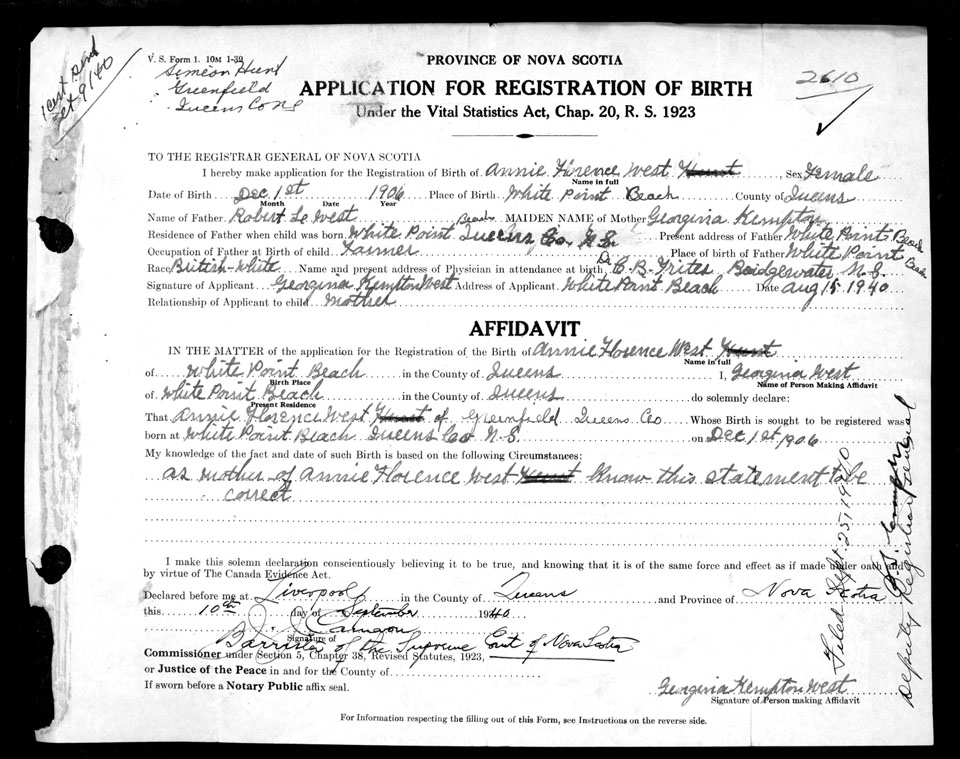 V. S. Form 1. 10M 1-39
Simeon Hunt
Greenfield
Queens Co N.S
1 cert Send
9/40
PROVINCE OF NOVA SCOTIA
APPLICATION FOR REGISTRATION OF BIRTH
Under the Vital Statistics Act, Chap. 20, R. S. 1923
2610
TO THE REGISTRAR GENERAL OF NOVA SCOTIA
I hereby make application for the Registration of Birth of Annie Florence West Hunt, Sex Female
Name in full
Date of Birth Dec 1st 1906 Place of Birth White Point Beach County of Queens
Month Date Year
Name of Father Robert Le West MAIDEN NAME of Mother Georgina Kempton
Residence of Father when child was born White Point Beach Queens Co. N.S. Present address of Father White Point Beach
Occupation of Father at Birth of child. Farmer Place of birth of Father White Point Beach
Race British-White Name and present address of Physician in attendance at birth Dr C. B. Frites Bridgewater N.S.
Signature of Applicant Georgina Kempton West Address of Applicant White Point Beach Date Aug 15 1940
Relationship of Applicant to child mother
AFFIDAVIT
IN THE MATTER of the application for the Registration of the Birth of Annie Florence West Hunt
Name in full
of White Point Beach in the County of Queens I, Georgina West
Birth Place Name of Person Making Affidavit
of White Point Beach in the County of Queens do solemnly declare:
Present Residence
That Annie Florence West Hunt of Greenfield Queens Co Whose Birth is sought to be registered was
born at White Point Beach Queens Co N.S. on Dec 1st 1906
My knowledge of the fact and date of such Birth is based on the following Circumstances:
as mother of Annie Florence West Hunt know this statement to be
correct
I make this solemn declaration conscientiously believing it to be true, and knowing that it is of the same force and effect as if made under oath and
by virtue of The Canada Evidence Act.
Declared before me at Liverpool in the County of Queens and Province of Nova Scotia
this 10th day of September 1940
Signature of
Barrister of the Supreme Court of Nova Scotia
Commissioner under Section 5, Chapter 38, Revised Statutes, 1923,
or Justice of the Peace in and for the County of
If sworn before a Notary Public affix seal.
Georgina Kempton West
Signature of Person making Affidavit
For Information respecting the filling out of this Form, see Instructions on the reverse side.
Filed Sept. 25, 1940
Deputy Registrar General